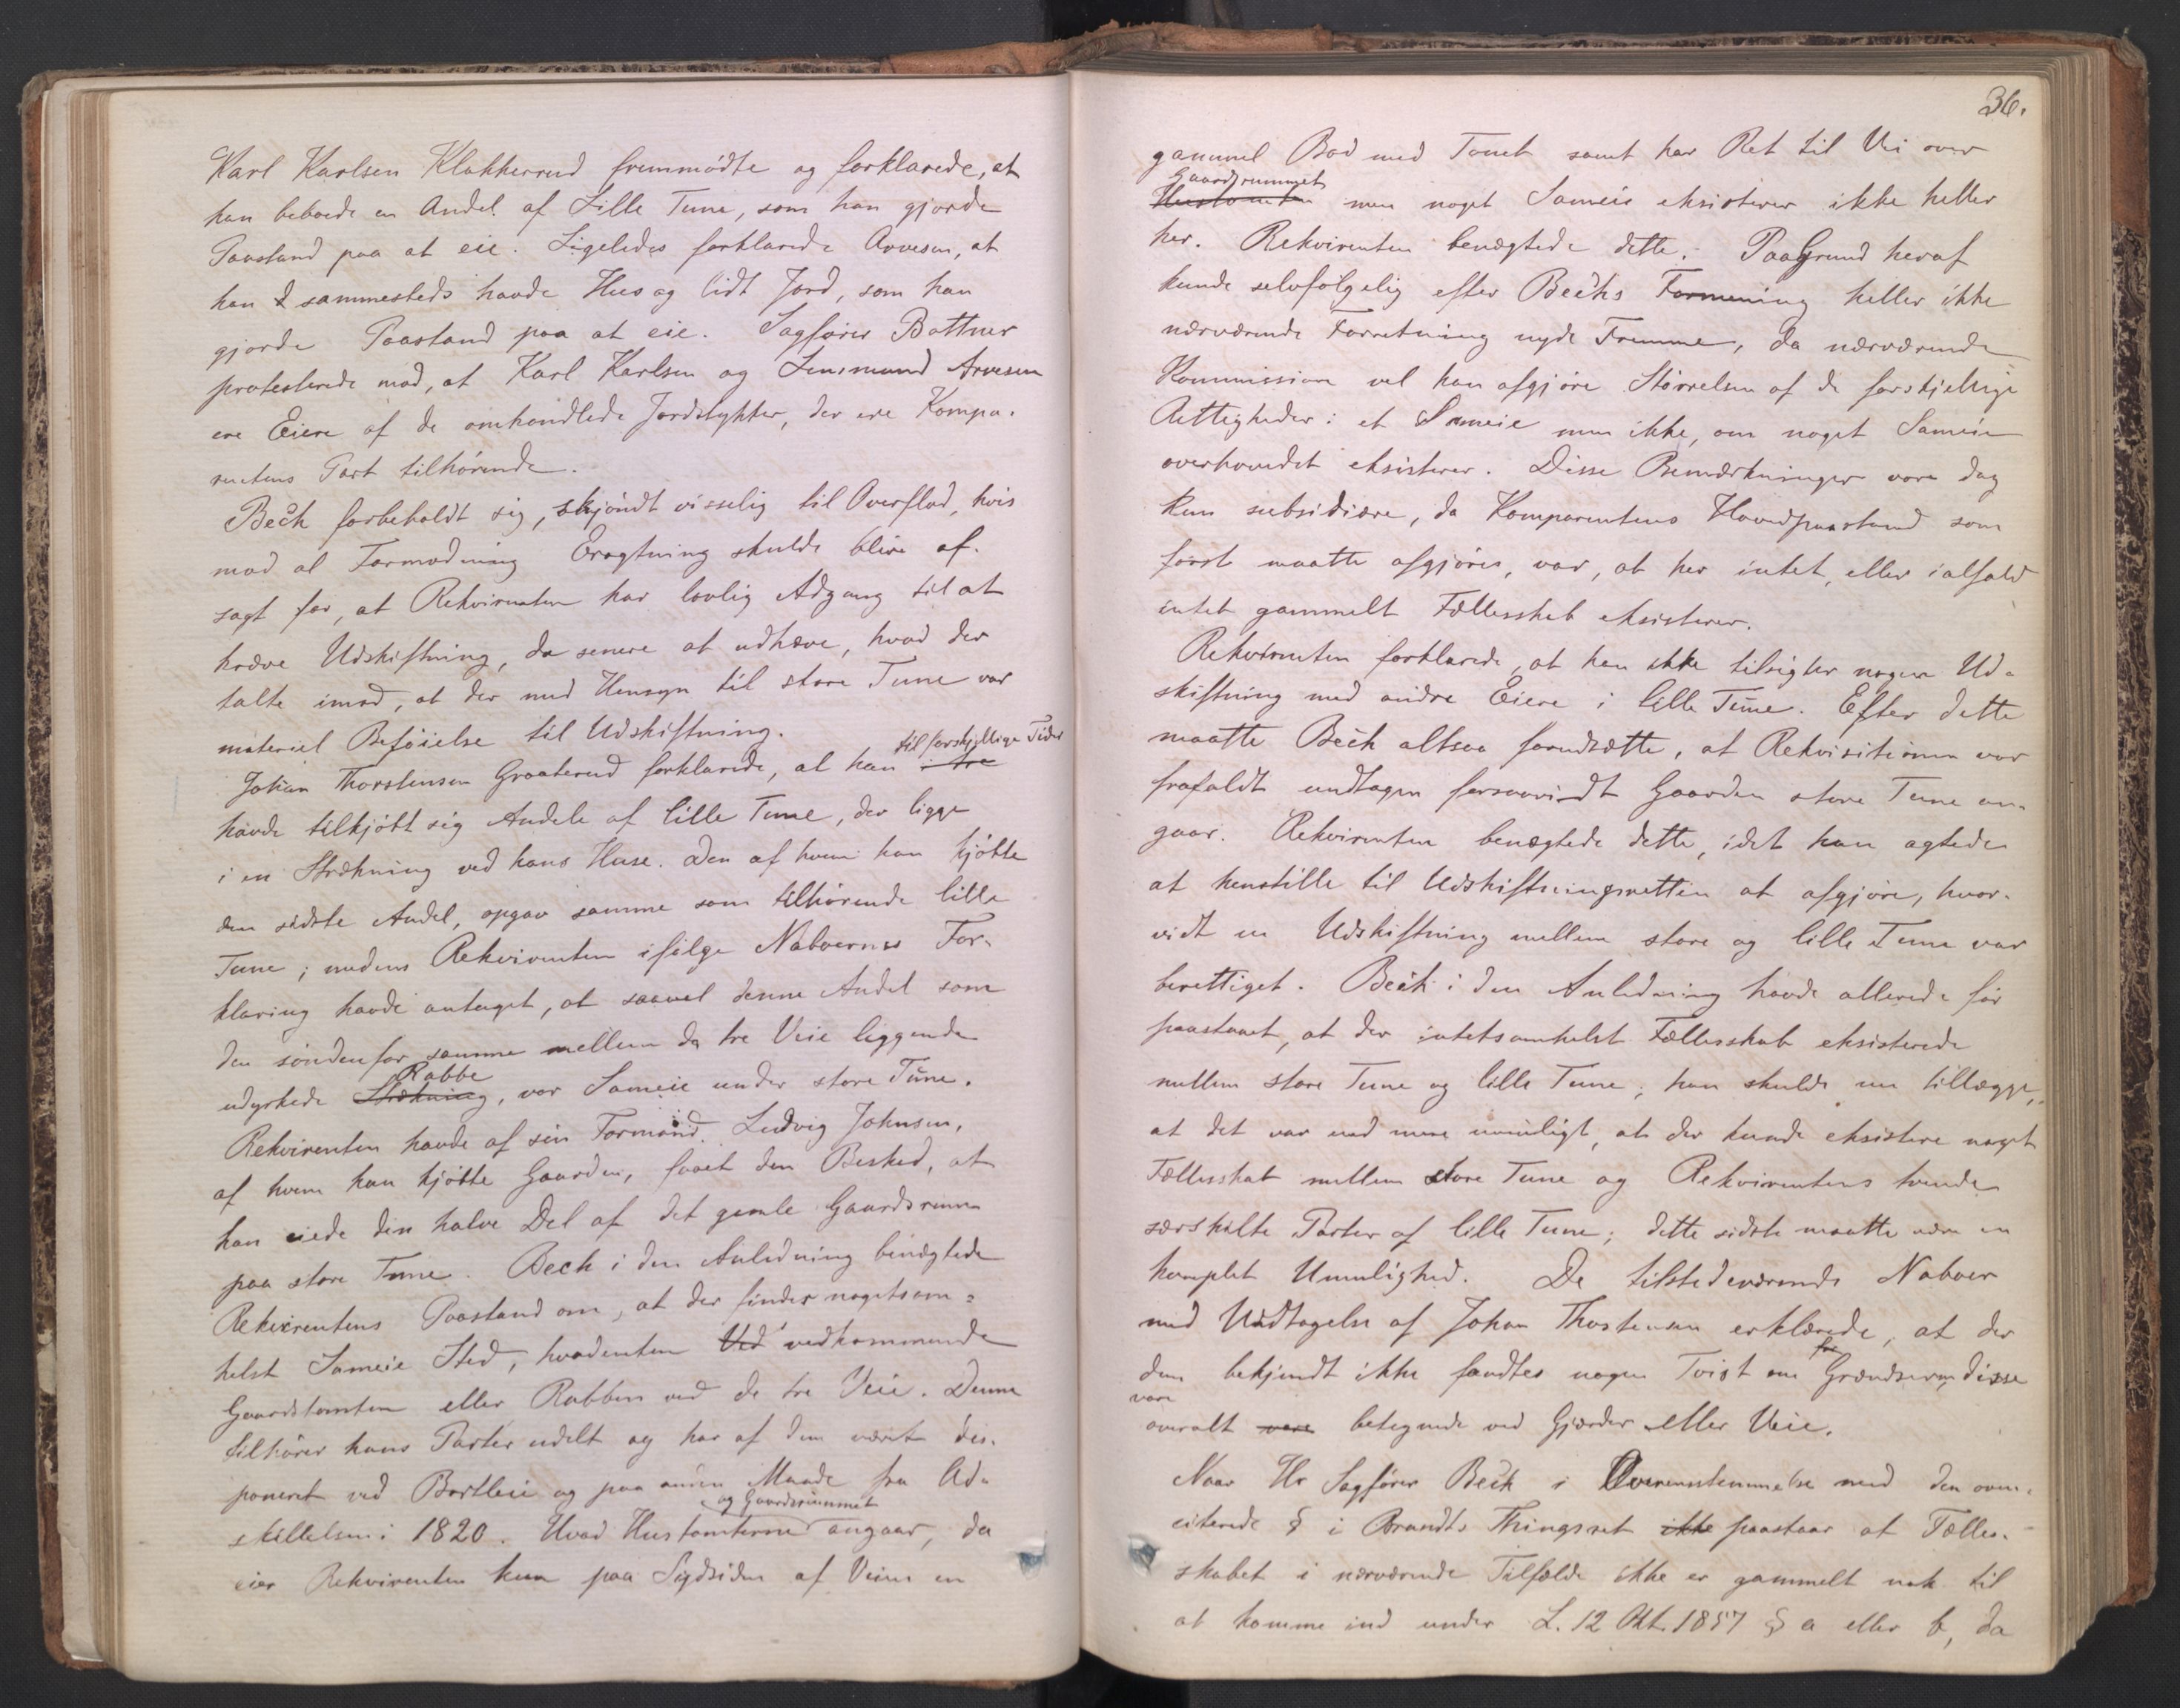 Karl Karlsen Klakkerud fremmødte og forklarede, at
han beboede en Andel af Lille Tune, som han gjorde
Paastand paa at eie. Ligeledes forklarede Arvesen, at
han sammesteds havde Hus og lidt Jord, som han
gjorde Paastand paa at eie. Sagfører Bøttner
protesterede mod, at Karl Karlsen og Lensmand Arvesen
ere Eiere af de omhandlede Jordstykker, der ere Kompa-
rentens Part tilhørende.
Bech forbeholdt sig, skjøndt visselig til Overflod, hvis
mod al Formodning Eragtning skulde blive af-
sagt for, at Rekvirenten har lovlig Adgang til at
kræve Udskiftning, da senere at udhæve, hvad der
talte imod, at der med Hensyn til store Tune var
materiel Beføielse til Udskiftning.
til forskjellige Tider
Johan Thorstensen Graaterud forklarede, at han i tre
havde tilkjøbt sig Andele af lille Tune, der ligge
i en Strækning ved hans Huse. Den af hvem han kjøbte
den sidste Andel, opgav samme som tilhørende lille
Tune; medens Rekvirenten ifølge Naboernes For-
klaring havde antaget, at saavel denne Andel som
den søndenfor samme mellem de tre Veie liggende
Rabbe
udyrkede Strækning, var Sameie under store Tune.
Rekvirenten havde af sin Formand Ludvig Johnsen,
af hvem han kjøbte Gaarden, faaet den Besked, at
han eiede den halve Del af det gamle Gaardsrum
paa store Tune. Bech i den Anledning benægtede
Rekvirentens Paastand om, at der finder nogetsom-
helst Sameie Sted, hvadenten Ved vedkommende
Gaardstomten eller Rabben ved de tre Veie. Denne
tilhører hans Parter udelt og har af dem været dis-
poneret ved Bortleie og paa anden Maade fra Ad-
og Gaardsrummet
skillelsen i 1820. Hvad Hustomterne angaar, da
eier Rekvirenten kun paa Sydsiden af Veien en
36.
gammel Bod med Tomt samt har Ret til Vei over
Gaardsrummet
Hustomten men noget Sameie eksisterer ikke heller
her. Rekvirenten benægtede dette. Paa Grund heraf
kunde selvfølgelig efter Bechs Formening heller ikke
nærværende Forretning nyde Fremme, da nærværende
Kommission vel kan afgjøre Størrelsen af de forskjellige
Rettigheder i et Sameie men ikke, om noget Sameie
overhovedet eksisterer. Disse Bemærkninger vare dog
kun subsidiære, da Komparentens Hovedpaastand som
først maatte afgjøres, var, at her intet, eller ialfald
intet gammelt Fællesskab eksisterer.
Rekvirenten forklarede, at han ikke tilsigter nogen Ud-
skiftning med andre Eiere i lille Tune. Efter dette
maatte Bech altsaa forudsætte, at Rekvisitionen var
frafaldt undtagen forsaavidt Gaarden store Tune an-
gaar. Rekvirenten benægtede dette, idet han agtede
at henstille til Udskiftningsretten at afgjøre, hvor-
vidt en Udskiftning mellem store og lille Tune var
berettiget. Bech i den Anledning havde allerede før
paastaaet, at der intetsomhelst Fællesskab eksisterede
mellem store Tune og lille Tune; han skulde nu tillægge,
at det var end mere umuligt, at der kunde eksistere noget
Fællesskab mellem store Tune og Rekvirentens tvende
særskilte Parter af lille Tune; dette sidste maatte være en
komplet Umulighed. De tilstedeværende Naboer
med Undtagelse af Johan Thorstensen erklærede, at der
dem bekjendt ikke fandtes nogen Tvist om Grændserne, disse
vare
overalt vare betegnede ved Gjærder eller Veie.
Naar Hr Sagfører Bech i Overensstemmelse med den oven-
citerede § i Brandts Thingsret ikke paastaar at Fælles-
skabet i nærværende Tilfælde ikke er gammelt nok til
at komme ind under L. 12 Okt. 1857 § a eller b, da